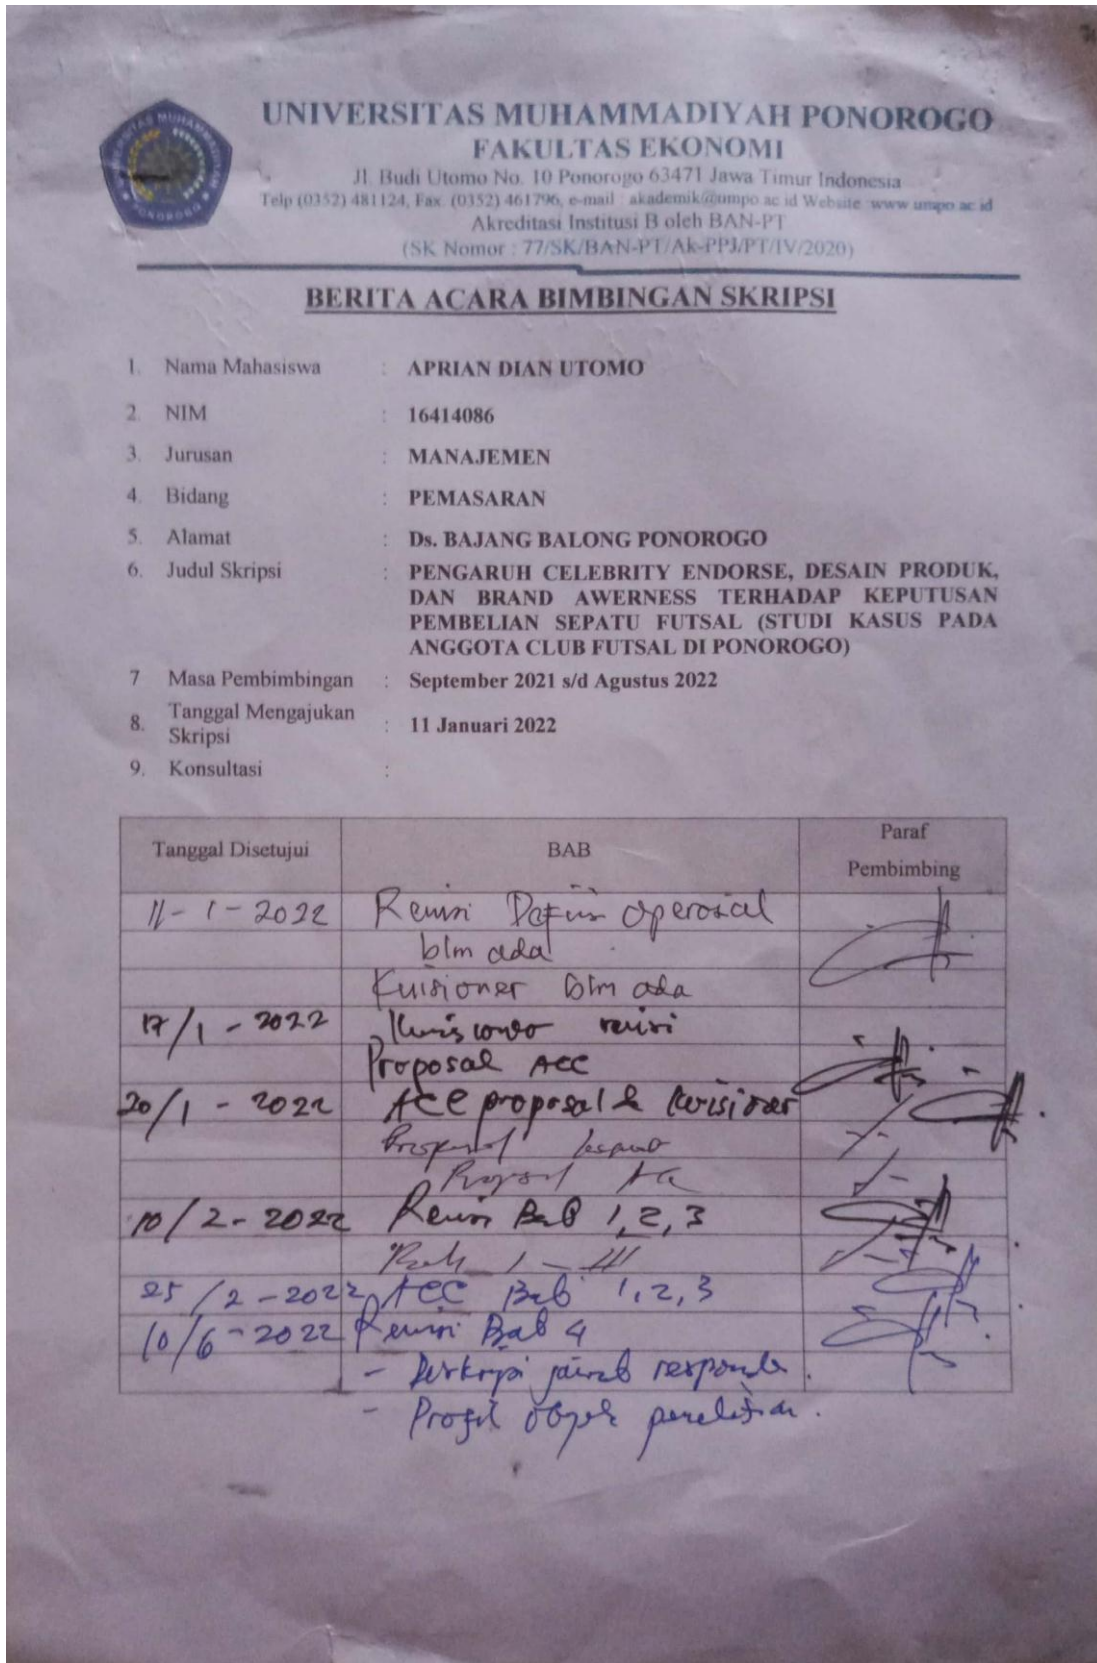 UNIVERSITAS MUHAMMADIYAH PONOROGO
FAKULTAS EKONOMI
Jl. Budi Utomo No. 10 Ponorogo 63471 Jawa Timur Indonesia
Telp (0352) 481124, Fax. (0352) 461796, e-mail : akademik@umpo.ac.id Website : www.umpo.ac.id
Akreditasi Institusi B oleh BAN-PT
(SK Nomor : 77/SK/BAN-PT/Ak-PPJ/PT/IV/2020)
BERITA ACARA BIMBINGAN SKRIPSI
1. Nama Mahasiswa : APRIAN DIAN UTOMO
2. NIM : 16414086
3. Jurusan : MANAJEMEN
4. Bidang : PEMASARAN
5. Alamat : Ds. BAJANG BALONG PONOROGO
6. Judul Skripsi : PENGARUH CELEBRITY ENDORSE, DESAIN PRODUK,
DAN BRAND AWERNESS TERHADAP KEPUTUSAN
PEMBELIAN SEPATU FUTSAL (STUDI KASUS PADA
ANGGOTA CLUB FUTSAL DI PONOROGO)
7 Masa Pembimbingan : September 2021 s/d Agustus 2022
8. Tanggal Mengajukan Skripsi : 11 Januari 2022
9. Konsultasi :
Tanggal Disetujui BAB Paraf Pembimbing
11-1-2022 Revisi
blm ada
Kuisioner blm ada
17/1-2022 revisi
Proposal ACC
20/1-2022 ACC proposal & kuisioner
10/2-2022 Revisi Bab 1,2,3
25/2-2022 ACC Bab 1,2,3
10/6-2022 Revisi Bab 4
- responden
- Profil objek penelitian.